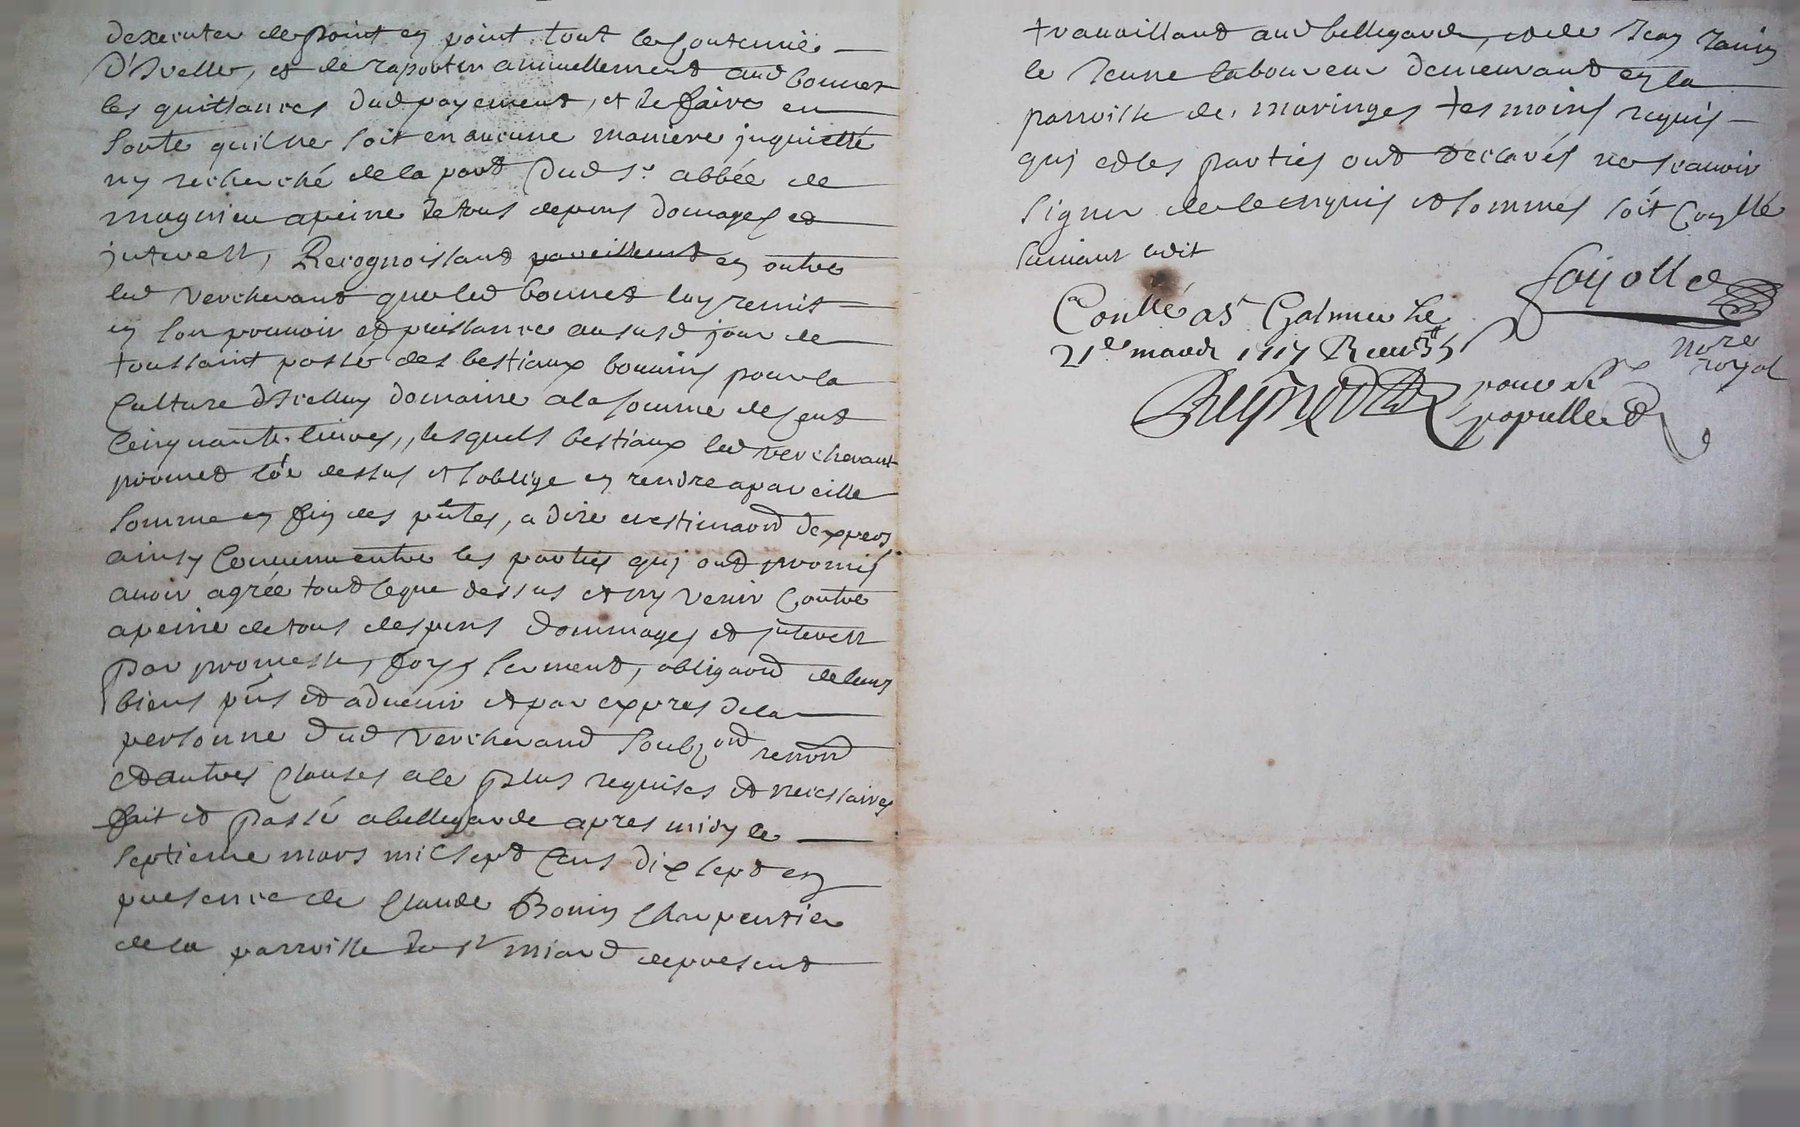 dexecuter de point en point tout le contenu
D'Icelle, et de raporter annuellement aud bonnet
les quittances dud payement, et de faire en
Sorte quil ne soit en aucune maniere inquietté
ny recherché de la part Dud Sr abbée de
a peine de tous depens domages et
interest, Recognoissant pareillement en outre
led Vercherand que led bonnet luy remit
en son pouvoir et puissance au susd jour de
toussaint passé des bestiaux bouvins pour la
Culture dIcelluy domaine a la somme de cent
Cinquante livres, lesquels bestiaux led vercherand
promet co'e dessus et soblige en rendre a pareille
somme en fin des pntes, a dire et estimaon dexpers
ainsy Convenu entre les parties qui ont promis
avoir agrée tout ceque dessus et ny venir Contre
apeine de tous despens dommages et interest
par promesse, foy, serment, obligaon de leurs
biens pns et advenir et par expres de la
personne Dud Vercherand Soubz on renon
et autres Clauses a ce plus requises et necessaires
fait et passé a bellegarde apres midy le
septieme mars mil sept Cens dix sept en
presence de Claude Bonin Charpentier
de la parroisse de St miard depresent
travaillant aud bellegarde, et de Jean
le Jeune laboureur demeurant en la
parroisse de maringes tesmoins requis
qui et les parties ont declarés ne scavoir
signer de ce enquis et sommés soit Conllé
suivant edit
fayolle
Conllé a St Galmier Le
nore
royal
21e mards 1717 Receu
pour
papulle et